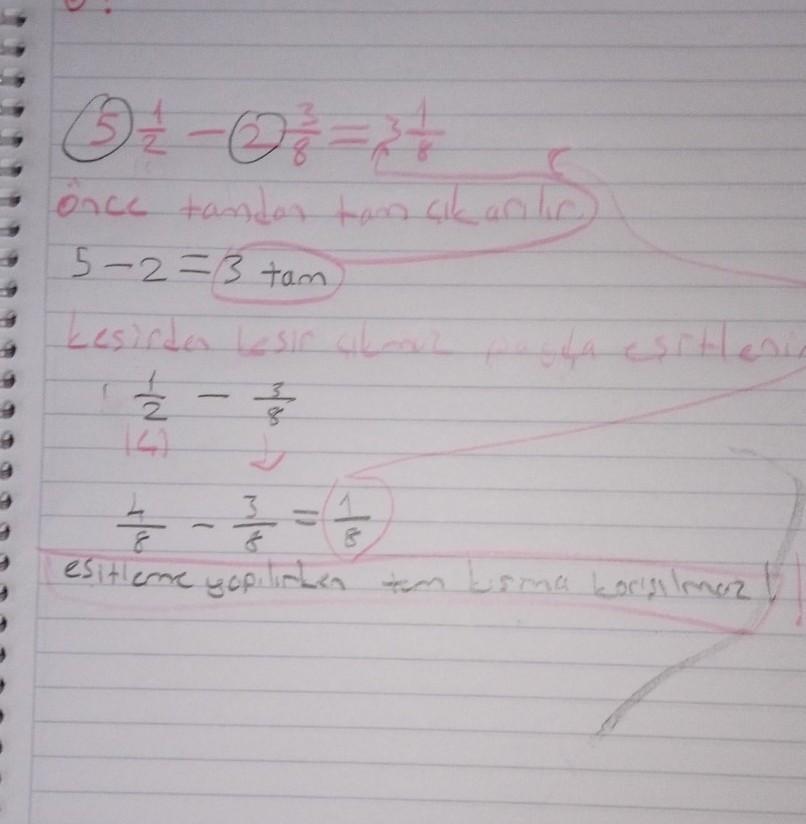 5 1/2 - 2 3/8 = 3 1/8
önce tamdan tam çıkarılır
5 - 2 = 3 tam
kesirden kesir payda esitleni
1/2 - 3/8
(4)
4/8 - 3/8 = 1/8
esitleme yapılırken tam kısma karışılmaz!